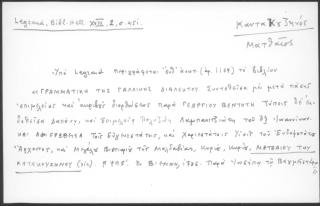 Legrand, Bibl. Hell. XVIII, 2, σ. 451.
Καντακουζηνός
Ματθαῖος
Ὑπὸ Legrand περιγράφεται ἐνθ' ἀνωτ. (ἀρ. 1184) τὸ βιβλίον
«ΓΡΑΜΜΑΤΙΚΗ ΤΗΣ ΓΑΛΛΙΚΗΣ ΔΙΑΛΕΚΤΟΥ Συντεθεῖσα μὲν μετὰ πάσης
ἐπιμελείας καὶ ἀκριβοῦς διορθώσεως παρὰ ΓΕΩΡΓΙΟΥ ΒΕΝΤΟΤΗ Τύποις δὲ ἐκ-
δοθεῖσα Δαπάνῃ, καὶ Ἐπιμελείᾳ Πολυζώη Λαμπανιτζιώτη τοῦ ἐξ Ἰωαννίνων.
ΚΑΙ ΑΦΙΕΡΩΘΕΙΣΑ Τοῖς Εὐγενεστάτοις, καὶ Χαριεστάτοις Υἱοῖς τοῦ Ἐνδοξοτάτου
Ἄρχοντος, καὶ Μεγάλου τῆς Μολδαβίας, Κυρίου, Κυρίου, ΜΑΤΘΑΙΟΥ ΤΟΥ
ΚΑΤΑΚΟΥΖΗΝΟΥ (sic). Ἐν Βιέννῃ, 1786. Παρὰ Ἰωσήπῳ τῷ Βαουμεϊστέρῳ